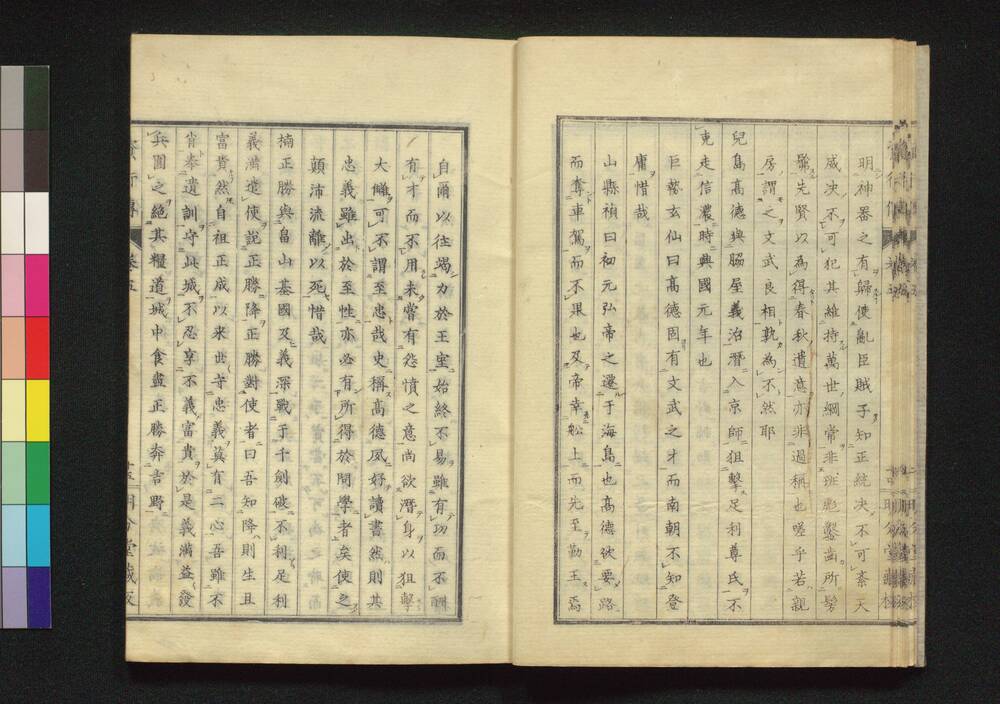 明神器之有歸使亂臣賊子知正統決不可紊天
威決不可犯其維持萬世綱常非班彪鑿齒所髣
髴先賢以為得春秋遺意亦非過稱也嗟乎若親
房謂之文武良相孰為不然耶
兒島高德與脇屋義治潛入京師狙擊足利尊氏不
克走信濃時興國元年也
巨勢玄仙曰高德固有文武之才而南朝不知登
庸惜哉
山縣禎曰初元弘帝之遷于海島也高德欲要路
而奪車駕而不果也及帝幸舩上而先至勤王焉
自爾以往竭力於王室始終不易雖有功而不酬
有才而不用未嘗有怨憤之意尚欲潛身以狙擊
大讎可不謂至忠哉史稱高德夙好讀書然則其
忠義雖出於至性亦必有所得於問學者矣使之
顛沛流離以死惜哉
楠正勝與畠山基國及義深戰于千劍破不利足利
義滿遣使說正勝降正勝對使者曰吾知降則生且
富貴然自祖正成以來世守忠義莫有二心吾雖不
肖奉遺訓守此城不忍享不義富貴於是義滿益發
兵圍之絕其糧道城中食盡正勝奔吉野
傳 卷五